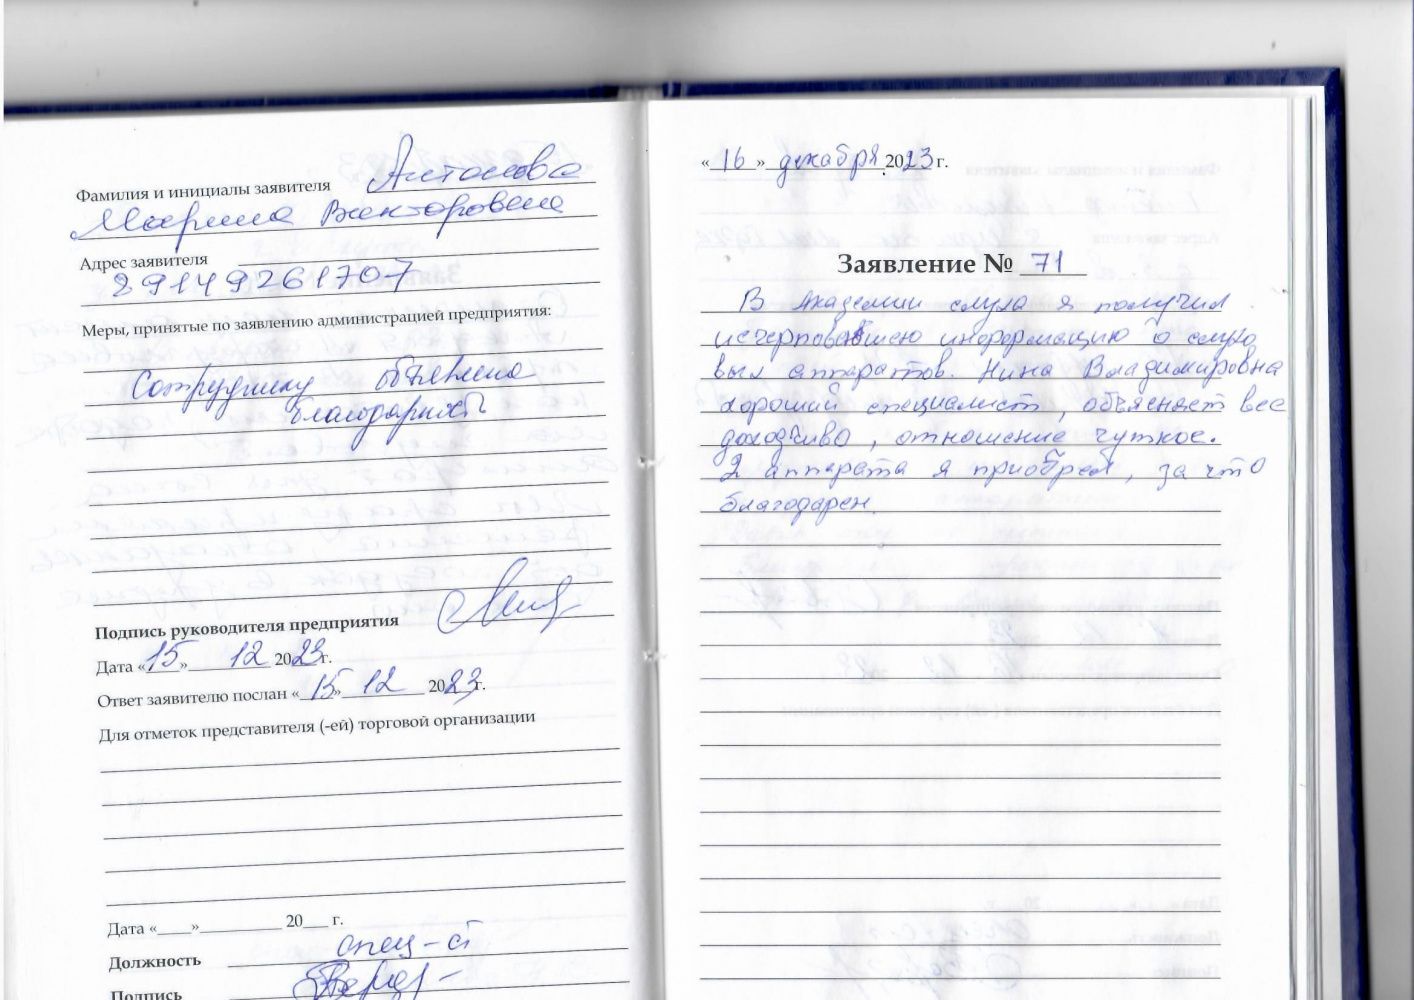 Фамилия и инициалы заявителя Антонова
Марина Викторовна
Адрес заявителя
89149261707
Меры, принятые по заявлению администрацией предприятия:
Сотруднику объявлена
благодарность
Подпись руководителя предприятия
Дата «15» 12 2023г.
Ответ заявителю послан «15» 12 2023г.
Для отметок представителя (-ей) торговой организации
Дата «____»__________ 20___ г.
Должность спец-т
Подпись
«16» декабря 2023г.
Заявление № 71
В Академии слуха я получил
исчерповавшею информацию о слухо
вых аппаратов. Нина Владимировна
хороший специалист, объясняет все
доходчиво, отношение чуткое.
2 аппарата я приобрел, за что
благодарен.